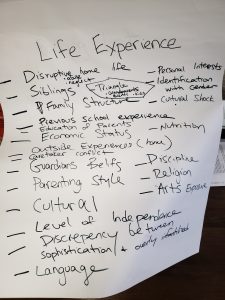 Life Experience
- Disruptive home life
abuse neglect
- Siblings
Triangle
- Family Structure
- Previous school experience
- Education of Parents
- Economic Status
- Outside Experiences (home)
- caretaker conflict
- Guardians Belfs
- Parenting Style
- Cultural
- Level of Independence
- Discrepency between
sophistication +
- Language
- Personal Interests
- Identification
with Gender
- Cultural Shock
- Nutrition
- Discipline
- Religion
- Arts Exposure